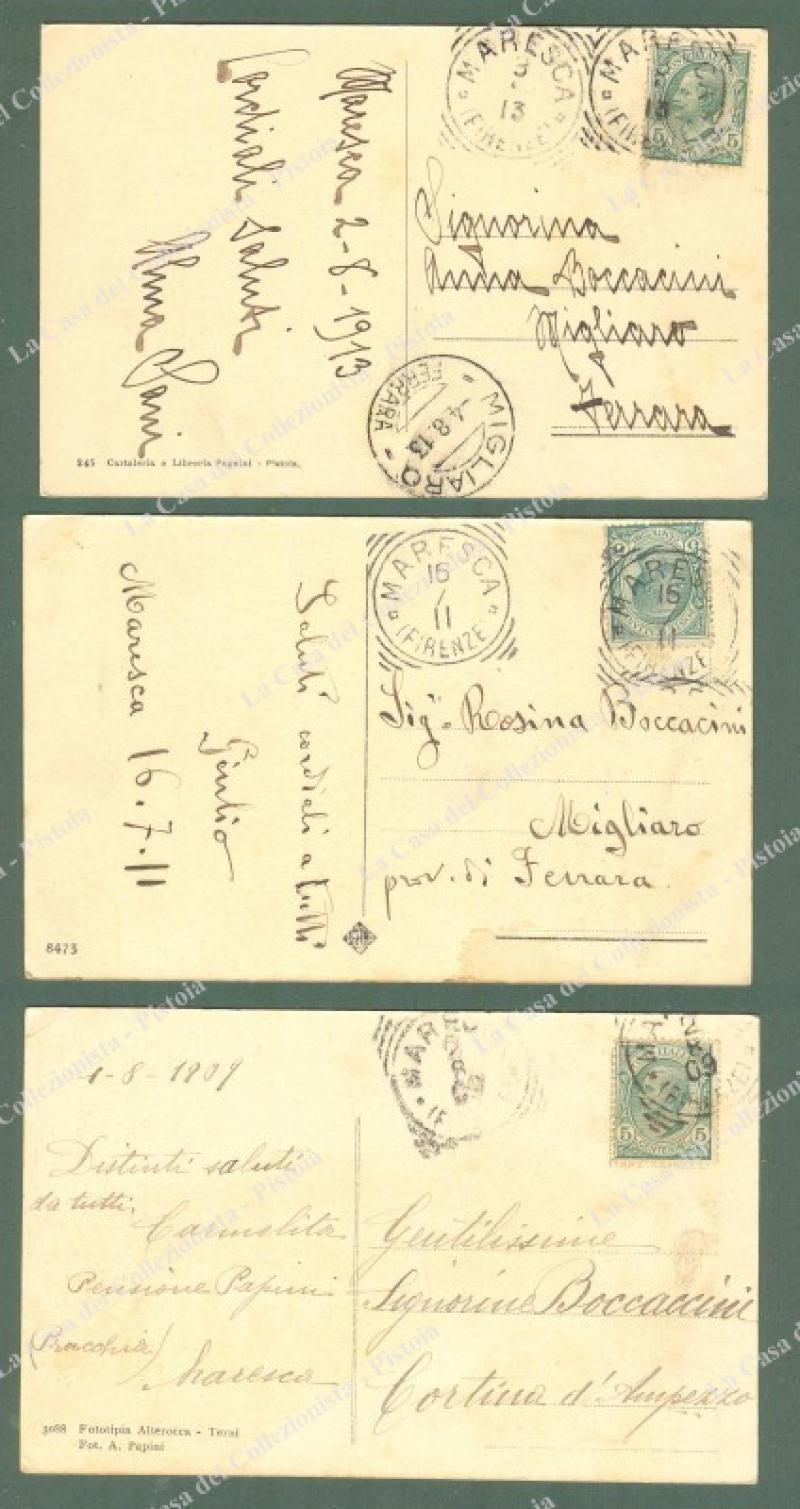 Maresca 2-8-1913
Cordiali saluti
MARESCA
(FIRENZE)
13
MARESCA
(FIRENZE)
13
5 5
Signorina
Boccacini
Migliaro
Ferrara
MIGLIARO
4.8.13
FERRARA
245 Cartoleria e Libreria Pagnini - Pistoia.
Maresca 16.7.11
Giulio
Saluti cordiali a tutti
MARESCA
16
11
(FIRENZE)
MARESCA
16
11
(FIRENZE)
Sigª Rosina Boccacini
Migliaro
prov. di Ferrara.
8473
1-8-1909
Distinti saluti
da tutti.
Carmelita
Pensione Papini
(Pracchia)
Maresca
09
5 5
Gentilissime
Signorine Boccaccini
Cortina d'Ampezzo
3088 Fototipia Alterocca - Terni
Fot. A. Papini
La Casa del Collezionista - Pistoia